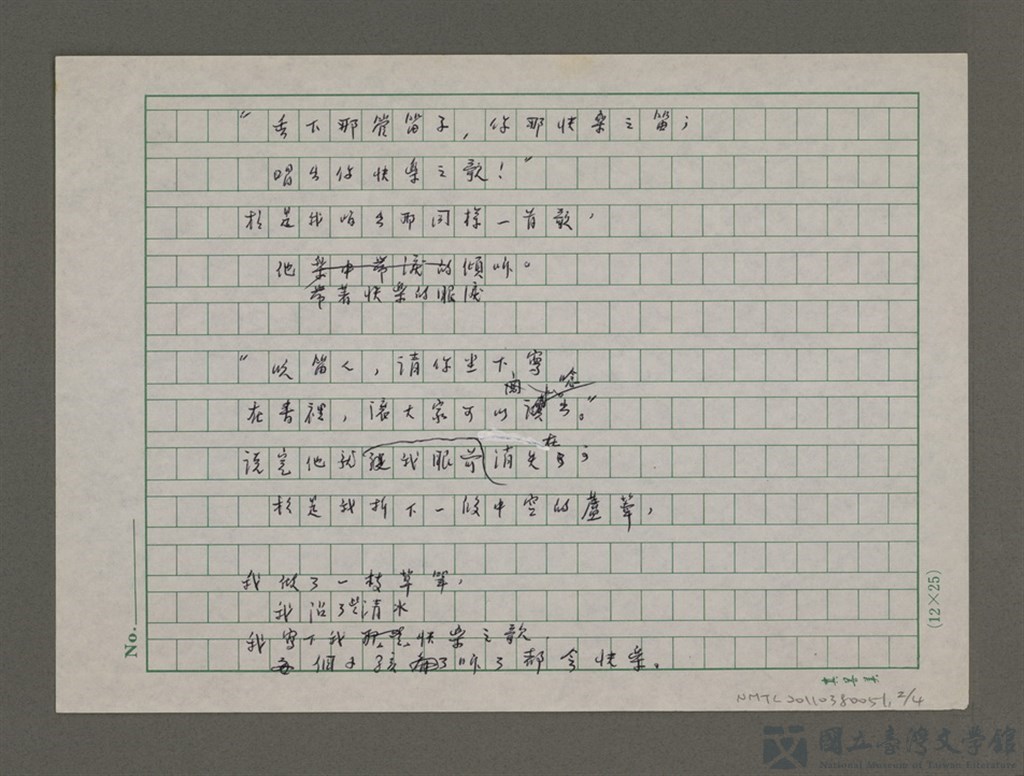 "丟下那管笛子，你那快樂之笛；
唱出你快樂之歌！"
於是我唱出那同樣一首歌，
他樂中帶淚的傾听。
帶著快樂的眼淚
"吹笛人，請你坐下，寫
在書裡，讓大家可以讀出。"
唸
說完他就從我眼前消失了；
在
於是我折下一段中空的蘆葦，
我做了一枝草筆，
我沾了些清水
我寫下我那些快樂之歌
每個小孩聽了听了都会快樂。
No.
(12×25)
NMTL20110380051, 2/4
國立臺灣文學館
National Museum of Taiwan Literature